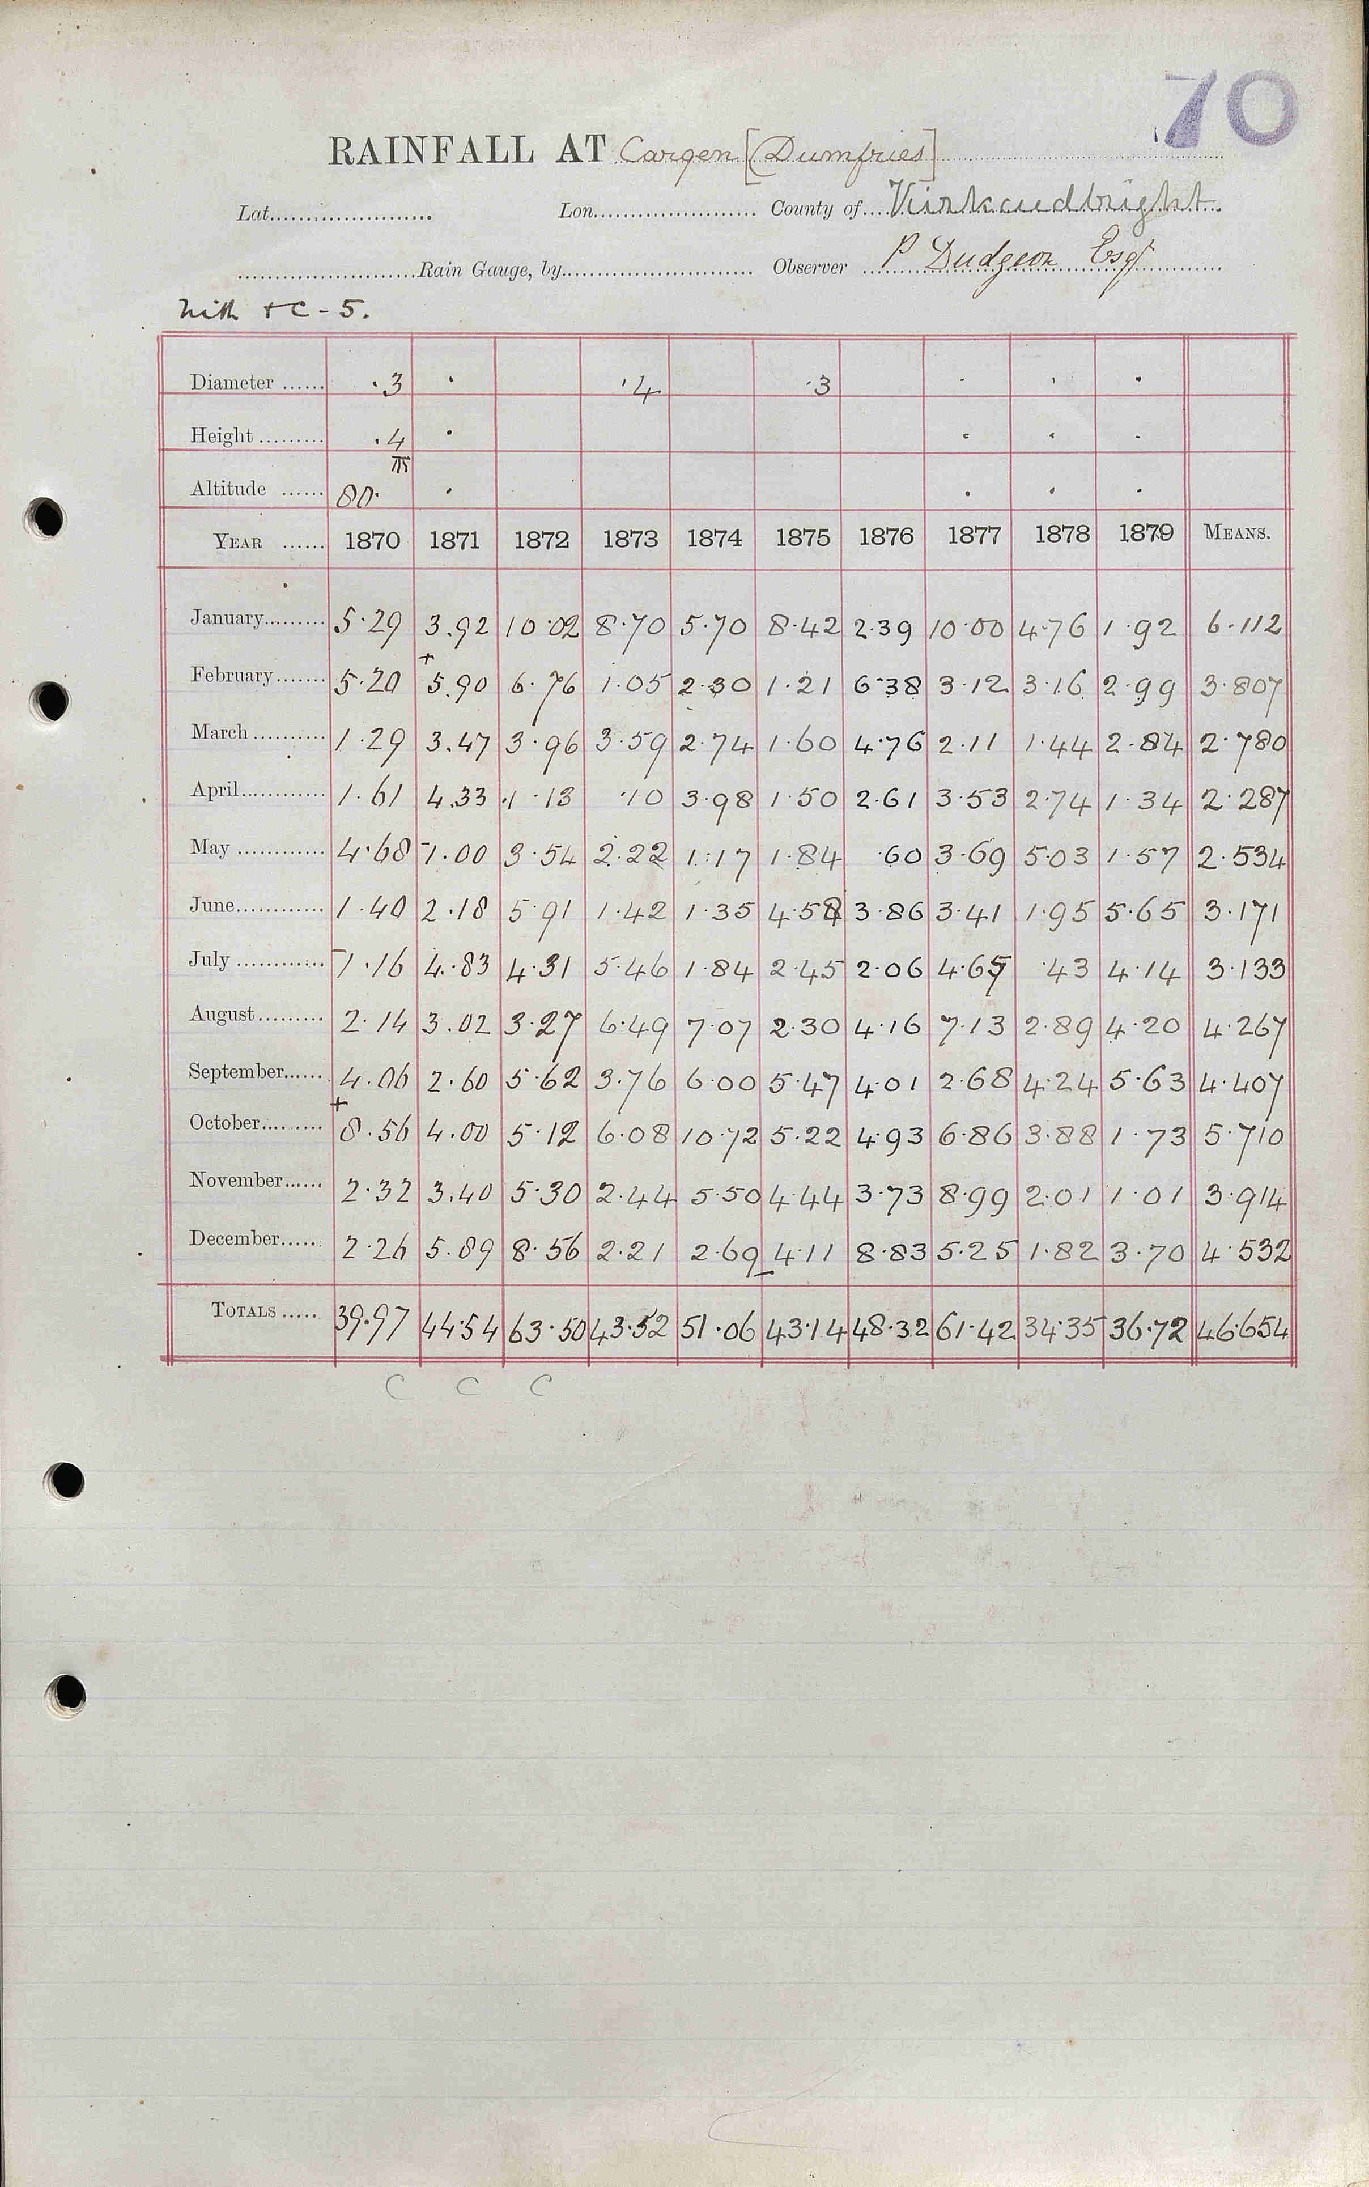 70
RAINFALL AT Cargen [Dumfries]
Lat. Lon. County of Kirkcudbright
Rain Gauge, by Observer P Dudgeon Esqr
Nith + C - 5.
Diameter ...... ·3 · ·4 ·3 · · ·
Height ......... ·4 · · · ·
Altitude ...... 80· · · · ·
YEAR ...... 1870 1871 1872 1873 1874 1875 1876 1877 1878 1879 MEANS.
January......... 5·29 3.92 10·02 8·70 5·70 8·42 2·39 10·00 4·76 1·92 6·112
February....... 5·20 + 5.90 6·76 1·05 2·30 1·21 6·38 3·12 3·16 2·99 3·807
March .......... 1·29 3.47 3·96 3·59 2·74 1·60 4·76 2·11 1·44 2·84 2·780
April............ 1·61 4.33 1·13 ·10 3·98 1·50 2·61 3·53 2·74 1·34 2·287
May ............ 4·68 1·00 3·54 2·22 1·17 1·84 ·60 3·69 5·03 1·57 2·534
June............ 1·40 2·18 5·91 1·42 1·35 4·58 3·86 3·41 1·95 5·65 3·171
July ............ 1·16 4·83 4·31 5·46 1·84 2·45 2·06 4·65 ·43 4·14 3·133
August......... 2·14 3.02 3·27 6·49 7·07 2·30 4·16 7·13 2·89 4·20 4·267
September...... 4·06 2·60 5·62 3·76 6·00 5·47 4·01 2·68 4·24 5·63 4·407
October......... + 8·56 4·00 5·12 6·08 10·72 5·22 4·93 6·86 3·88 1·73 5·710
November...... 2·32 3.40 5·30 2·44 5·50 4·44 3·73 8·99 2·01 1·01 3·914
December..... 2·26 5·89 8·56 2·21 2·69 4·11 8·83 5·25 1·82 3·70 4·532
TOTALS ..... 39·97 44·54 63·50 43·52 51·06 43·14 48·32 61·42 34·35 36·72 46·654
C C C